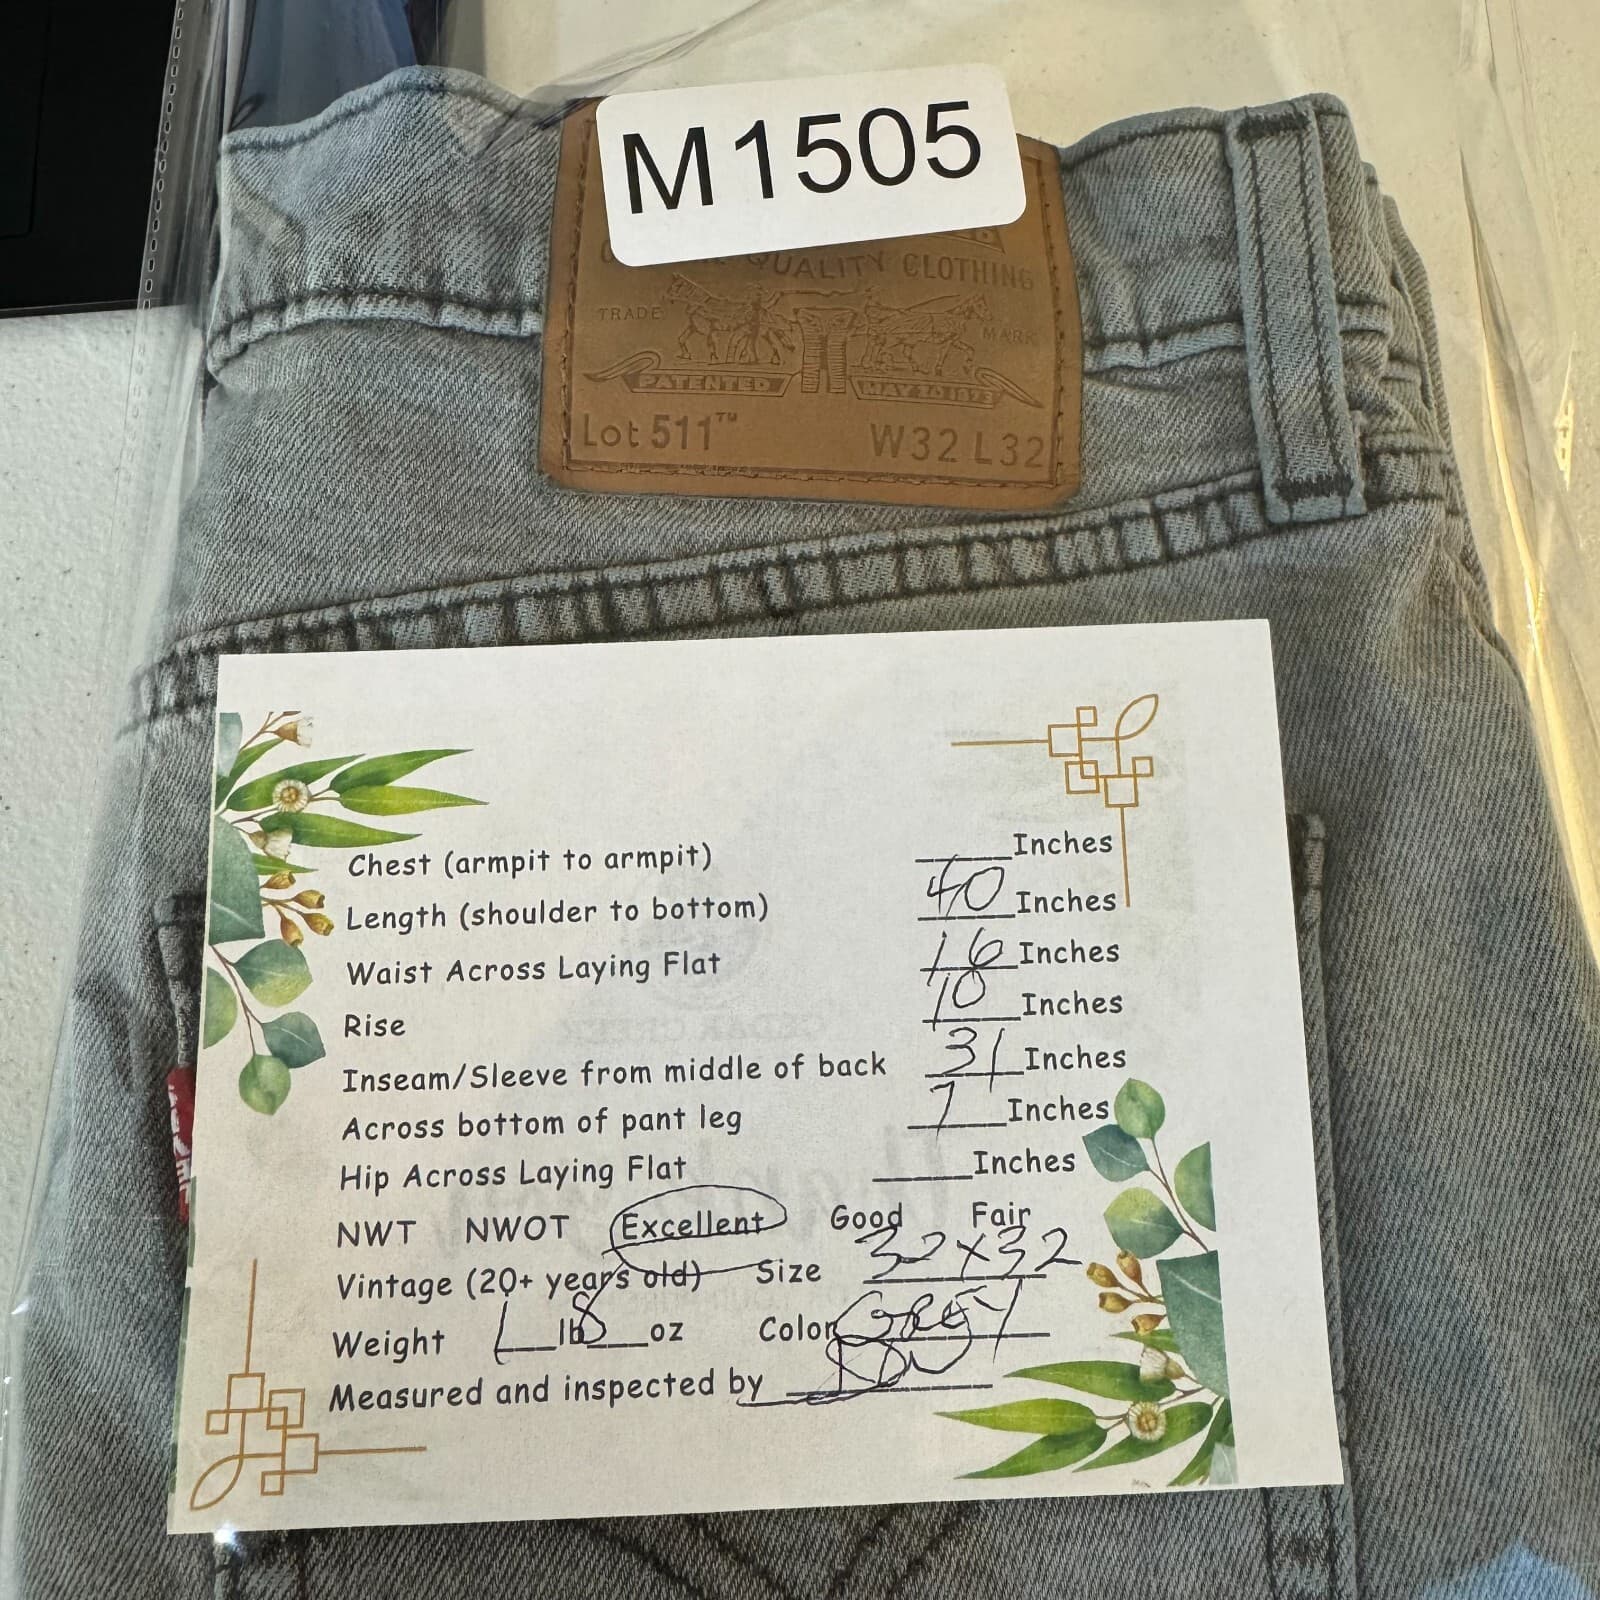 M1505
QUALITY CLOTHING
TRADE MARK
PATENTED MAY 20 1873
Lot 511™ W32 L32
Chest (armpit to armpit) ____Inches
Length (shoulder to bottom) 40 Inches
Waist Across Laying Flat 16 Inches
Rise 10 Inches
Inseam/Sleeve from middle of back 31 Inches
Across bottom of pant leg 7 Inches
Hip Across Laying Flat ____Inches
NWT NWOT Excellent Good Fair
Vintage (20+ years old) Size 32x32
Weight 1 lb 8 oz Color Grey
Measured and inspected by